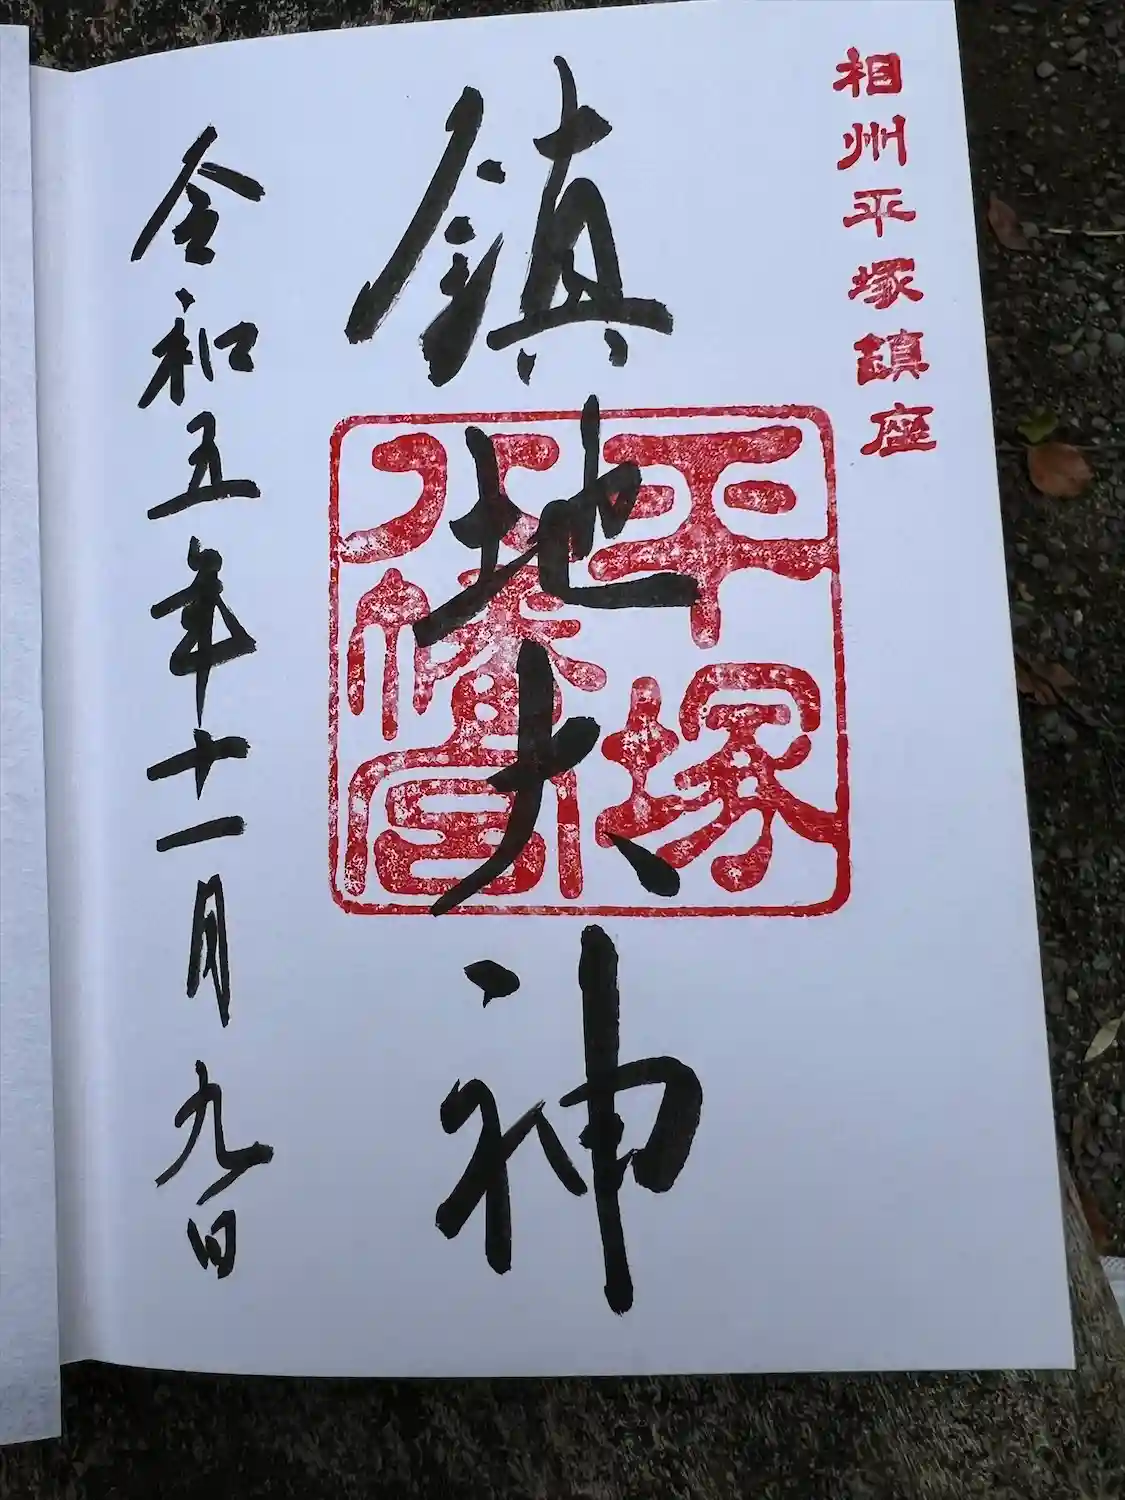 相州平塚鎮座
鎮地大神
平塚
八幡宮
令和五年十一月九日